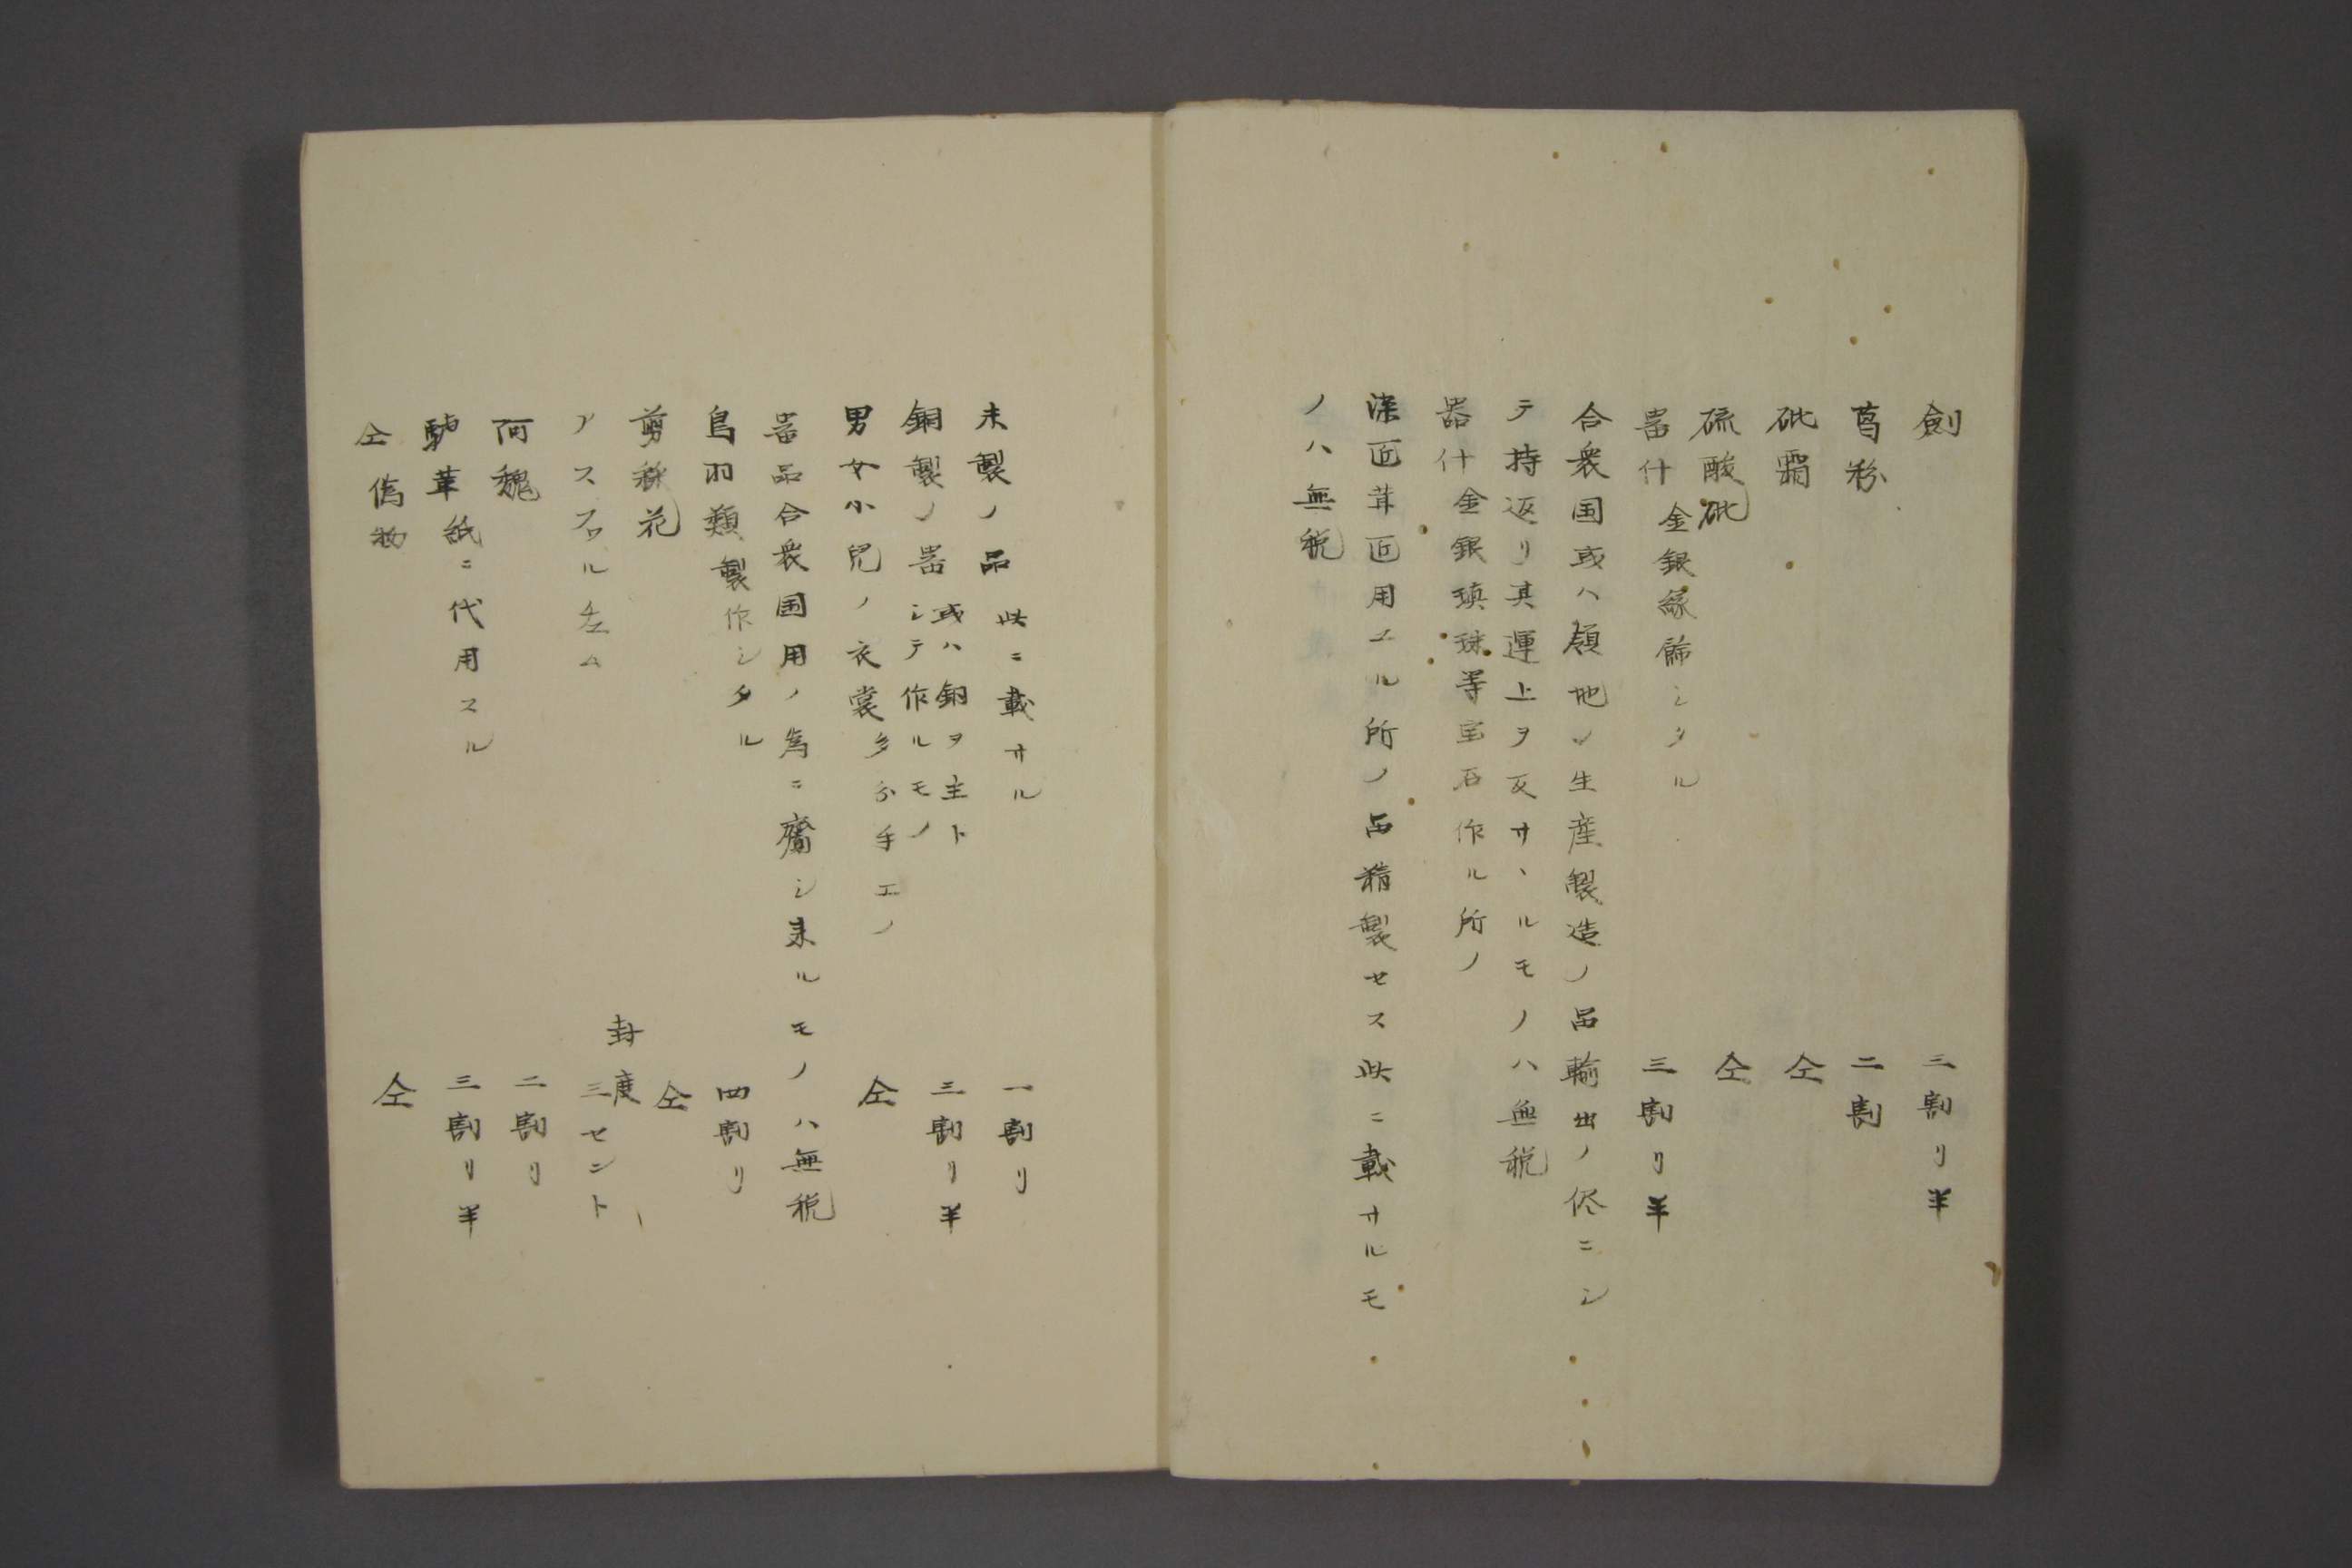 劍　三割リ半
葛粉　二割
砒霜　仝
硫酸砒　仝
噐什　金銀縁飾シタル　三割リ半
合衆国或ハ領地ノ生産製造ノ品輸出ノ侭ニシ
テ持返リ其運上ヲ反サヽルモノハ無税
器什　金銀璝珠等宝石作ル所ノ
染匠茸匠用エル所ノ品精製セス此ニ載サルモ
ノハ無税
未製ノ品　此ニ載サル　一割リ
銅製ノ噐　或ハ銅ヲ主トシテ作ルモノ　三割リ半
男女小児ノ衣裳　多分手工ノ　仝
噐品合衆国用ノ為ニ齎シ来ルモノハ無税
鳥羽類　製作シタル　四割リ
剪綵花　仝
アスフアルチュム　封度　三セント
阿魏　二割リ
驢革　紙ニ代用スル　三割リ半
仝偽物　仝